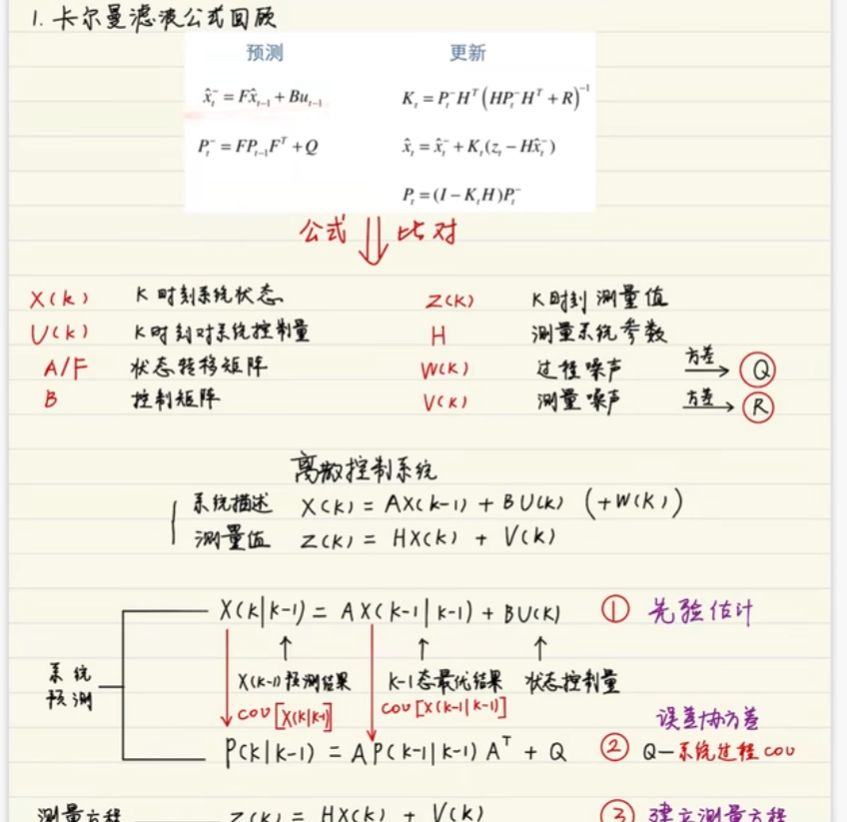 1. 卡尔曼滤液公式回顾
预测 更新
x̂ₜ⁻ = Fx̂ₜ₋₁ + Buₜ₋₁ Kₜ = Pₜ⁻Hᵀ(HPₜ⁻Hᵀ + R)⁻¹
Pₜ⁻ = FPₜ₋₁Fᵀ + Q x̂ₜ = x̂ₜ⁻ + Kₜ(zₜ − Hx̂ₜ⁻)
Pₜ = (I − KₜH)Pₜ⁻
公式 比对
X(k) K时刻系统状态 Z(K) K时刻测量值
U(k) K时刻对系统控制量 H 测量系统参数
A/F 状态转移矩阵 W(K) 过程噪声 方差 → Q
B 控制矩阵 V(K) 测量噪声 方差 → R
离散控制系统
系统描述 X(k) = AX(k-1) + BU(k) (+W(K))
测量值 Z(k) = HX(k) + V(k)
X(k|k-1) = AX(k-1|k-1) + BU(k) ① 先验估计
系统
预测
X(k-1)预测结果 k-1态最优结果 状态控制量
cov[X(k|k-1)] cov[X(k-1|k-1)]
误差协方差
P(k|k-1) = AP(k-1|k-1)Aᵀ + Q ② Q-系统过程cov
测量方程 Z(k) = HX(k) + V(k) ③ 建立测量方程